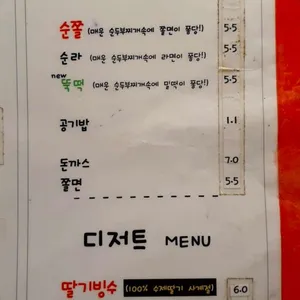 순쫄 (매운 순두부찌개속에 쫄면이 퐁당!) 5.5
순라 (매운 순두부찌개속에 라면이 퐁당!) 5.5
new
뚝떡 (매운 순두부찌개속에 밀떡이 퐁당!) 5.5
공기밥 1.1
돈까스 7.0
쫄면 5.5
디저트 MENU
딸기빙수 (100% 수제딸기 사계절) 6.0